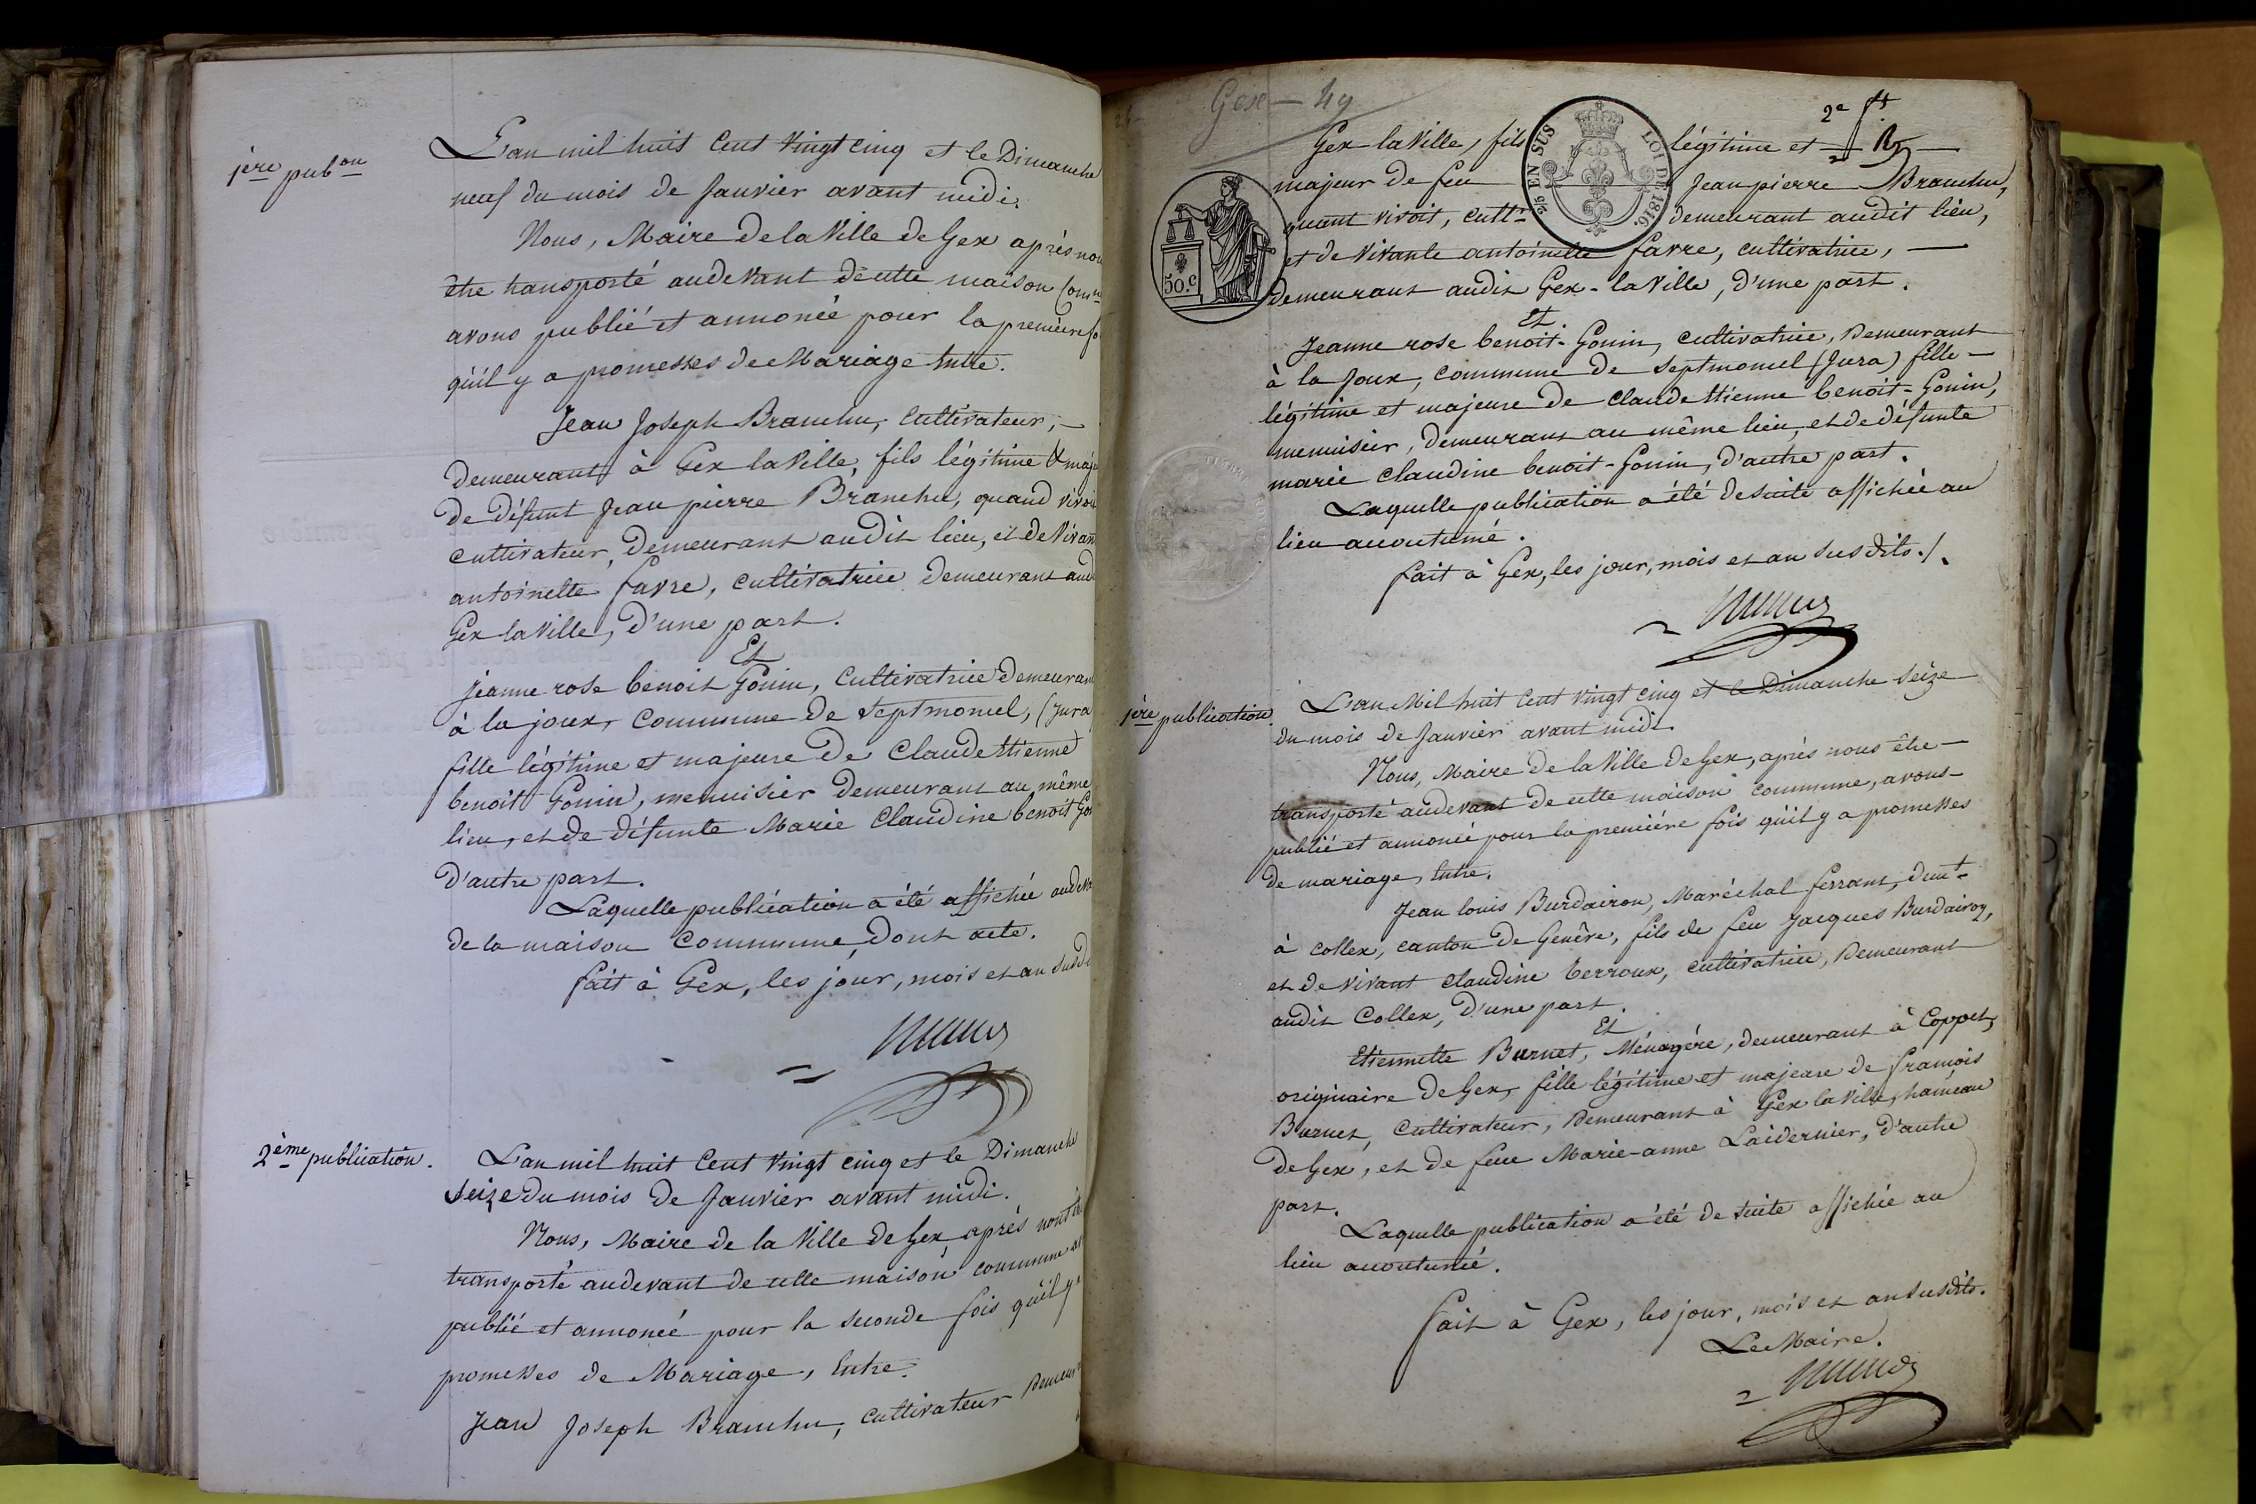 1ère pubon
L'an mil huit Cent vingt cinq et le Dimanche
neuf du mois de Janvier avant midi.
Nous, Maire de la Ville de Gex après nou
être transporté audevant de cette maison Comne
avons publié et annoncé pour la première fo
qu'il y a promesses de Mariage Entre.
Jean Joseph Branchu, Cultivateur, —
Demeurant à Gex la Ville, fils légitime & maje
de défunt Jean pierre Branchu, quand vivoi
cultivateur, Demeurant audit lieu, et de Vivan
antoinette favre, cultivatrice demeurant aud
Gex la Ville, d'une part.
Et
Jeanne rose benoit Gonin, Cultivatrice Demeuran
à la joux, Commune de Septmoncel, (Jura
fille légitime et majeure de Claude Etienne
benoit Gonin, menuisier Demeurant au même
lieu, et de défunte Marie Claudine benoit Go
D'autre part.
Laquelle publication a été affichée audeva
de la maison Commune, Dont acte.
fait à Gex, les jour, mois et an susdi
2ème publication.
L'an mil huit Cent vingt cinq et le Dimanche
Seize du mois de Janvier avant midi.
Nous, Maire de la Ville de Gex après nous
transporté audevant de cette maison commune
publié et annoncé pour la seconde fois qu'il y
promesses de Mariage, Entre.
Jean Joseph Branchu, cultivateur Demeur
Gex — 49
2e
Gex la Ville, fils légitime et —
majeur de feu Jean pierre Branchu,
quant vivoit, cultr demeurant audit lieu,
et de Vivante antoinette favre, cultivatrice, —
demeurant audit Gex-la Ville, d'une part.
25 EN SUS
LOI DE 1816.
50.c
Et
Jeanne rose benoit-Gonin, cultivatrice, Demeurant
à la Joux, commune de Septmoncel (Jura) fille —
légitime et majeure de Claude Etienne benoit-Gonin,
menuisier, Demeurant au même lieu, et de défunte
marie Claudine benoit-Gonin, d'autre part.
Laquelle publication a été desuite affichée au
lieu accoutumé.
fait à Gex, les jour, mois et an susdits./.
1ère publication.
L'an Mil huit Cent vingt cinq et le Dimanche Seize
du mois de Janvier avant midi.
Nous, Maire de la Ville de Gex, après nous être —
transporté audevant de cette maison commune, avons —
publié et annoncé pour la première fois qu'il y a promesses
de mariage, Entre.
Jean louis Burdairon, Maréchal ferrant, demt
à collex, canton de Genève, fils de feu Jacques Burdairon,
et de vivant Claudine terroux, cultivatrice, Demeurant
audit Collex, D'une part.
Et
Etiennette Burnet, Ménagère, demeurant à Coppet,
originaire de Gex, fille légitime et majeure de françois
Burnet, Cultivateur, Demeurant à Gex la Ville, hameau
de Gex, et de feue Marie-anne Laidernier, d'autre
part.
Laquelle publication a été de suite affichée au
lieu accoutumé.
fait à Gex, les jour, mois et an susdits.
Le Maire.